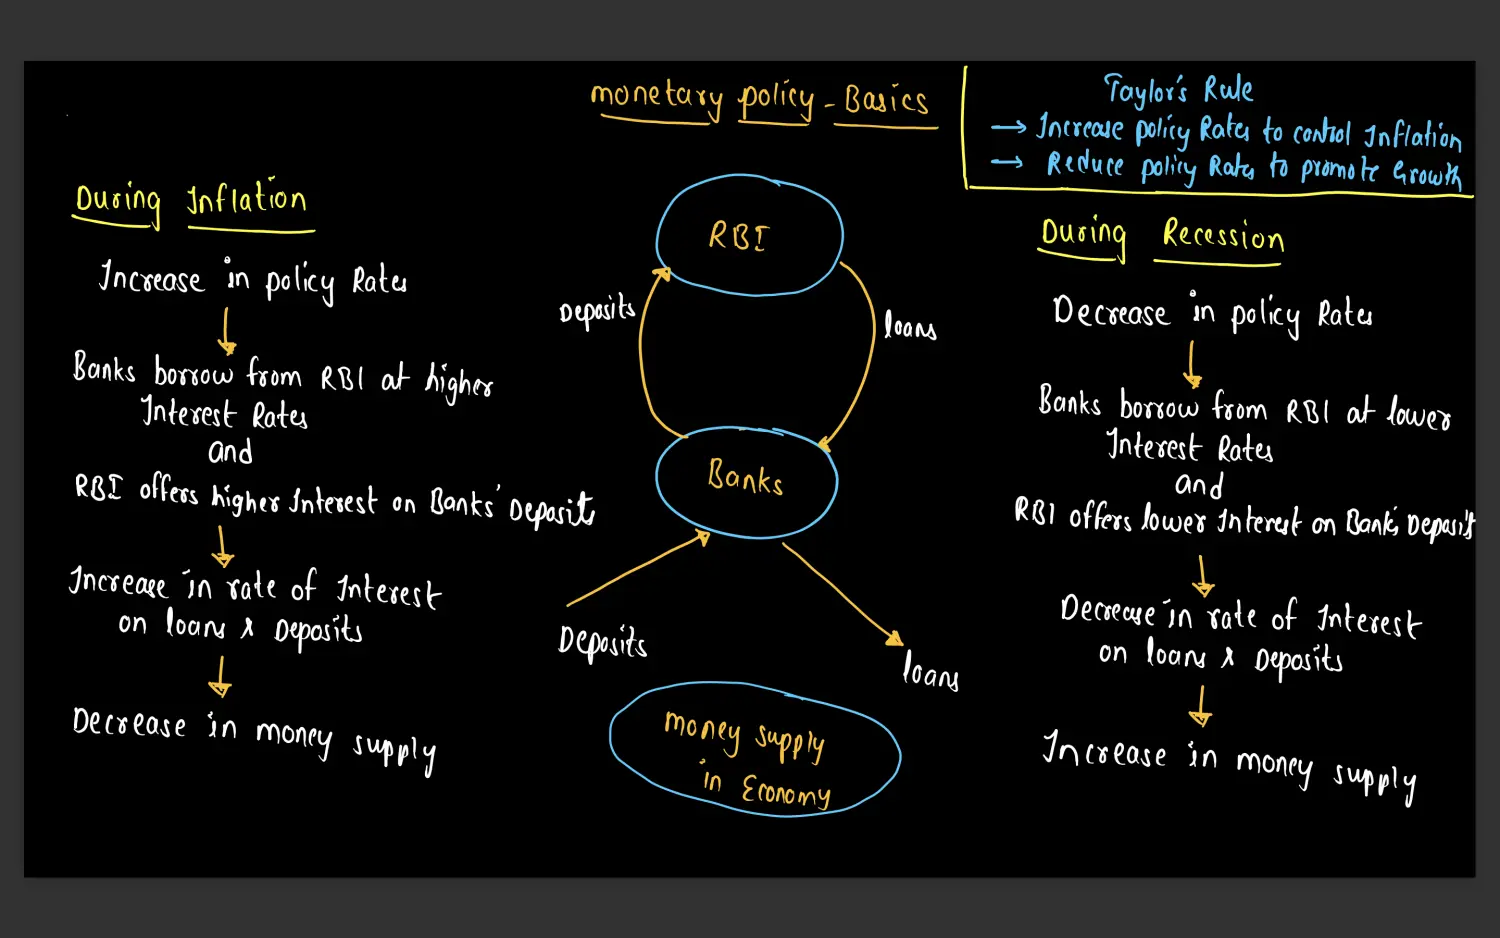 monetary policy - Basics
Taylor's Rule
→ Increase policy Rates to control Inflation
→ Reduce policy Rates to promote Growth
During Inflation
Increase in policy Rates
Banks borrow from RBI at higher
Interest Rates
and
RBI offers higher Interest on Banks' Deposits
Increase in rate of Interest
on loans & Deposits
Decrease in money supply
RBI
Deposits
loans
Banks
Deposits
loans
money supply
in Economy
During Recession
Decrease in policy Rates
Banks borrow from RBI at lower
Interest Rates
and
RBI offers lower Interest on Bank's Deposits
Decrease in rate of Interest
on loans & Deposits
Increase in money supply